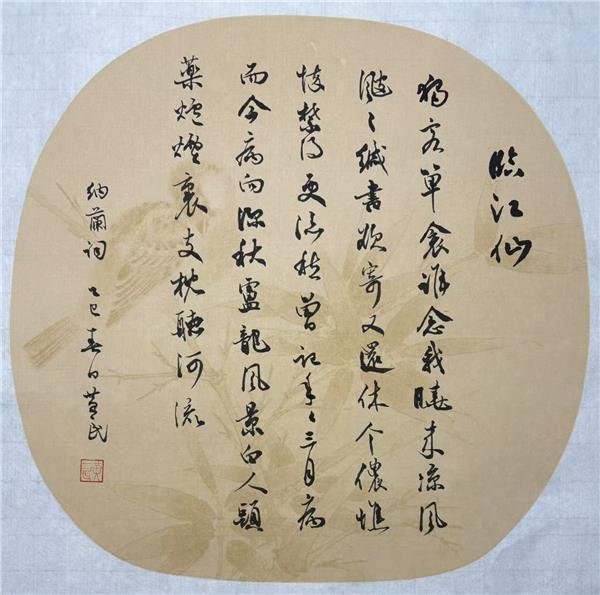 臨江仙
獨客單衾誰念我曉来涼風
颼〻緘書欲寄又還休个儂憔
悴禁得更添愁曾記年〻三月病
而今病向深秋盧龍風景白人頭
藥爐煙裏支枕聽河流
納蘭詞 乙巳春日民